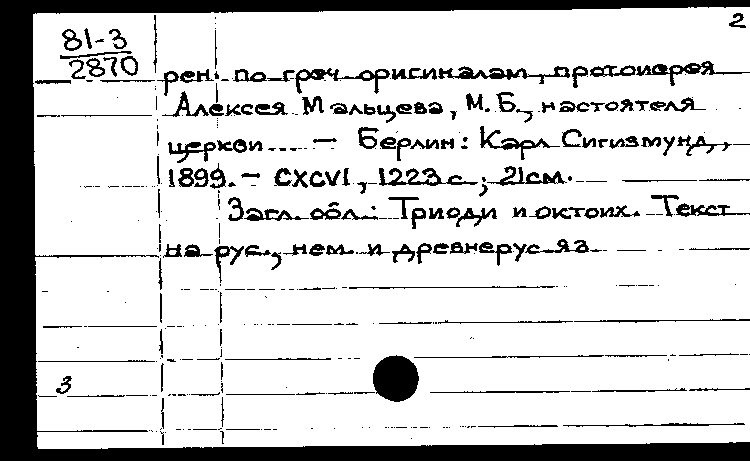 2
81-3
2870
рен. по греч оригиналам, протоиерея
Алексея Мальцева, М. Б., настоятеля
церкви... — Берлин: Карл Сигизмунд,,
1899. — CXCVI, 1223 с.; 21см.
Загл. обл.: Триоди и октоих. Текст
на рус., нем. и древнерус яз
3